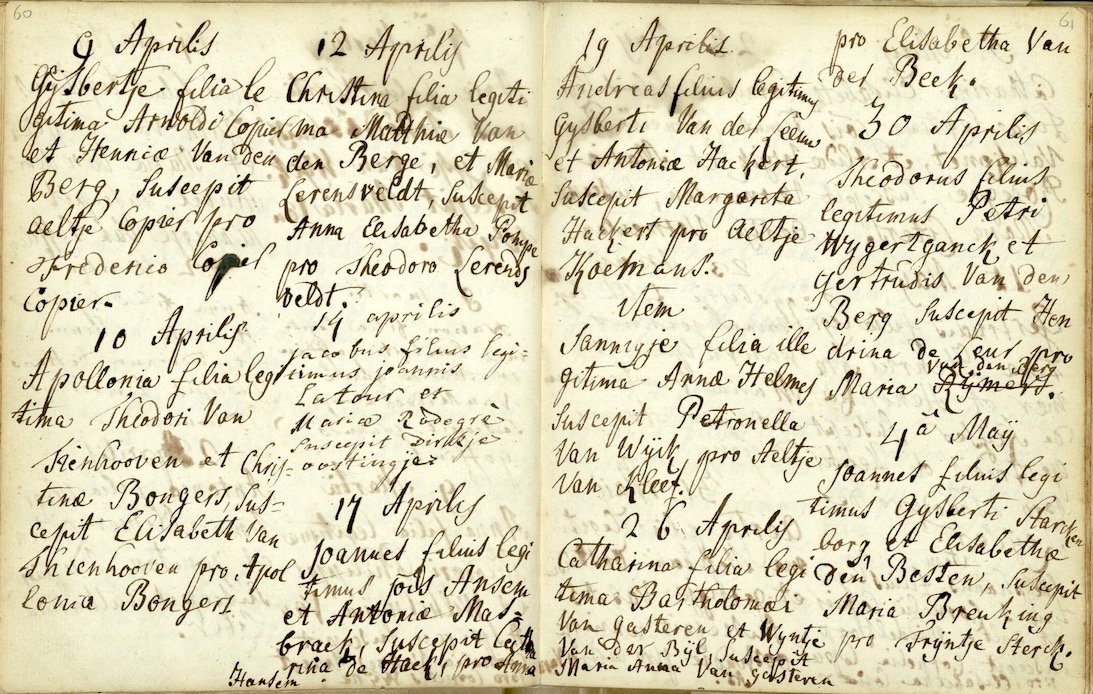 60
9 Aprilis
Gijsbertje filia le
gitima Arnoldi Copier
et Henricæ Van den
Berg, Suscepit
Aeltje Copier pro
Frederico Copier
Copier.
10 Aprilis
Apollonia filia legi
tima Theodori Van
Schienhooven et Chris-
tinæ Bongers, Sus-
cepit Elisabeth Van
Schienhooven pro Apol
lonia Bongers
12 Aprilis
Christina filia legiti
ma Matthiæ Van
den Berge, et Mariæ
Lerensveldt, Suscepit
Anna Elisabetha Pompe
pro Theodoro Lerends
veldt.
14 aprilis
jacobus filius legi-
timus joannis
Latour et
Mariæ Rodegrè
Suscepit Dirkje
oostingje
17 Aprilis
Joannes filius legi
timus jois Ansem
et Antoniæ Mas-
braek, Suscepit Catha
rina de Haek, pro Anna
Hansem
61
19 Aprilis
Andreas filius legitimus
Gysberti Van der Leeuw
et Antoniæ Hackert,
Suscepit Margarita
Hackert pro Aeltje
Koemans.
item
Jannigje filia ille
gitima Annæ Helmes
Suscepit Petronella
Van Wyik, pro Aeltje
Van Kleef.
26 Aprilis
Catharina filia legi
tima Bartholomæi
Van Gasteren et Wyntje
Van der Bijl, Suscepit
Maria Anna Van Gasteren
pro Elisabetha Van
der Beek.
30 Aprilis
Theodorus filius
legitimus Petri
Wygertganck et
Gertrudis Van den
Berg Suscepit Hen
drina de Leur pro
Van den Berg
Maria Rijmers.
4ª Maÿ
Joannes filius legi
timus Gysberti Starcken
borg et Elisabethæ
den Besten, Suscepit
Maria Breuking
pro Trÿntje Sterck.